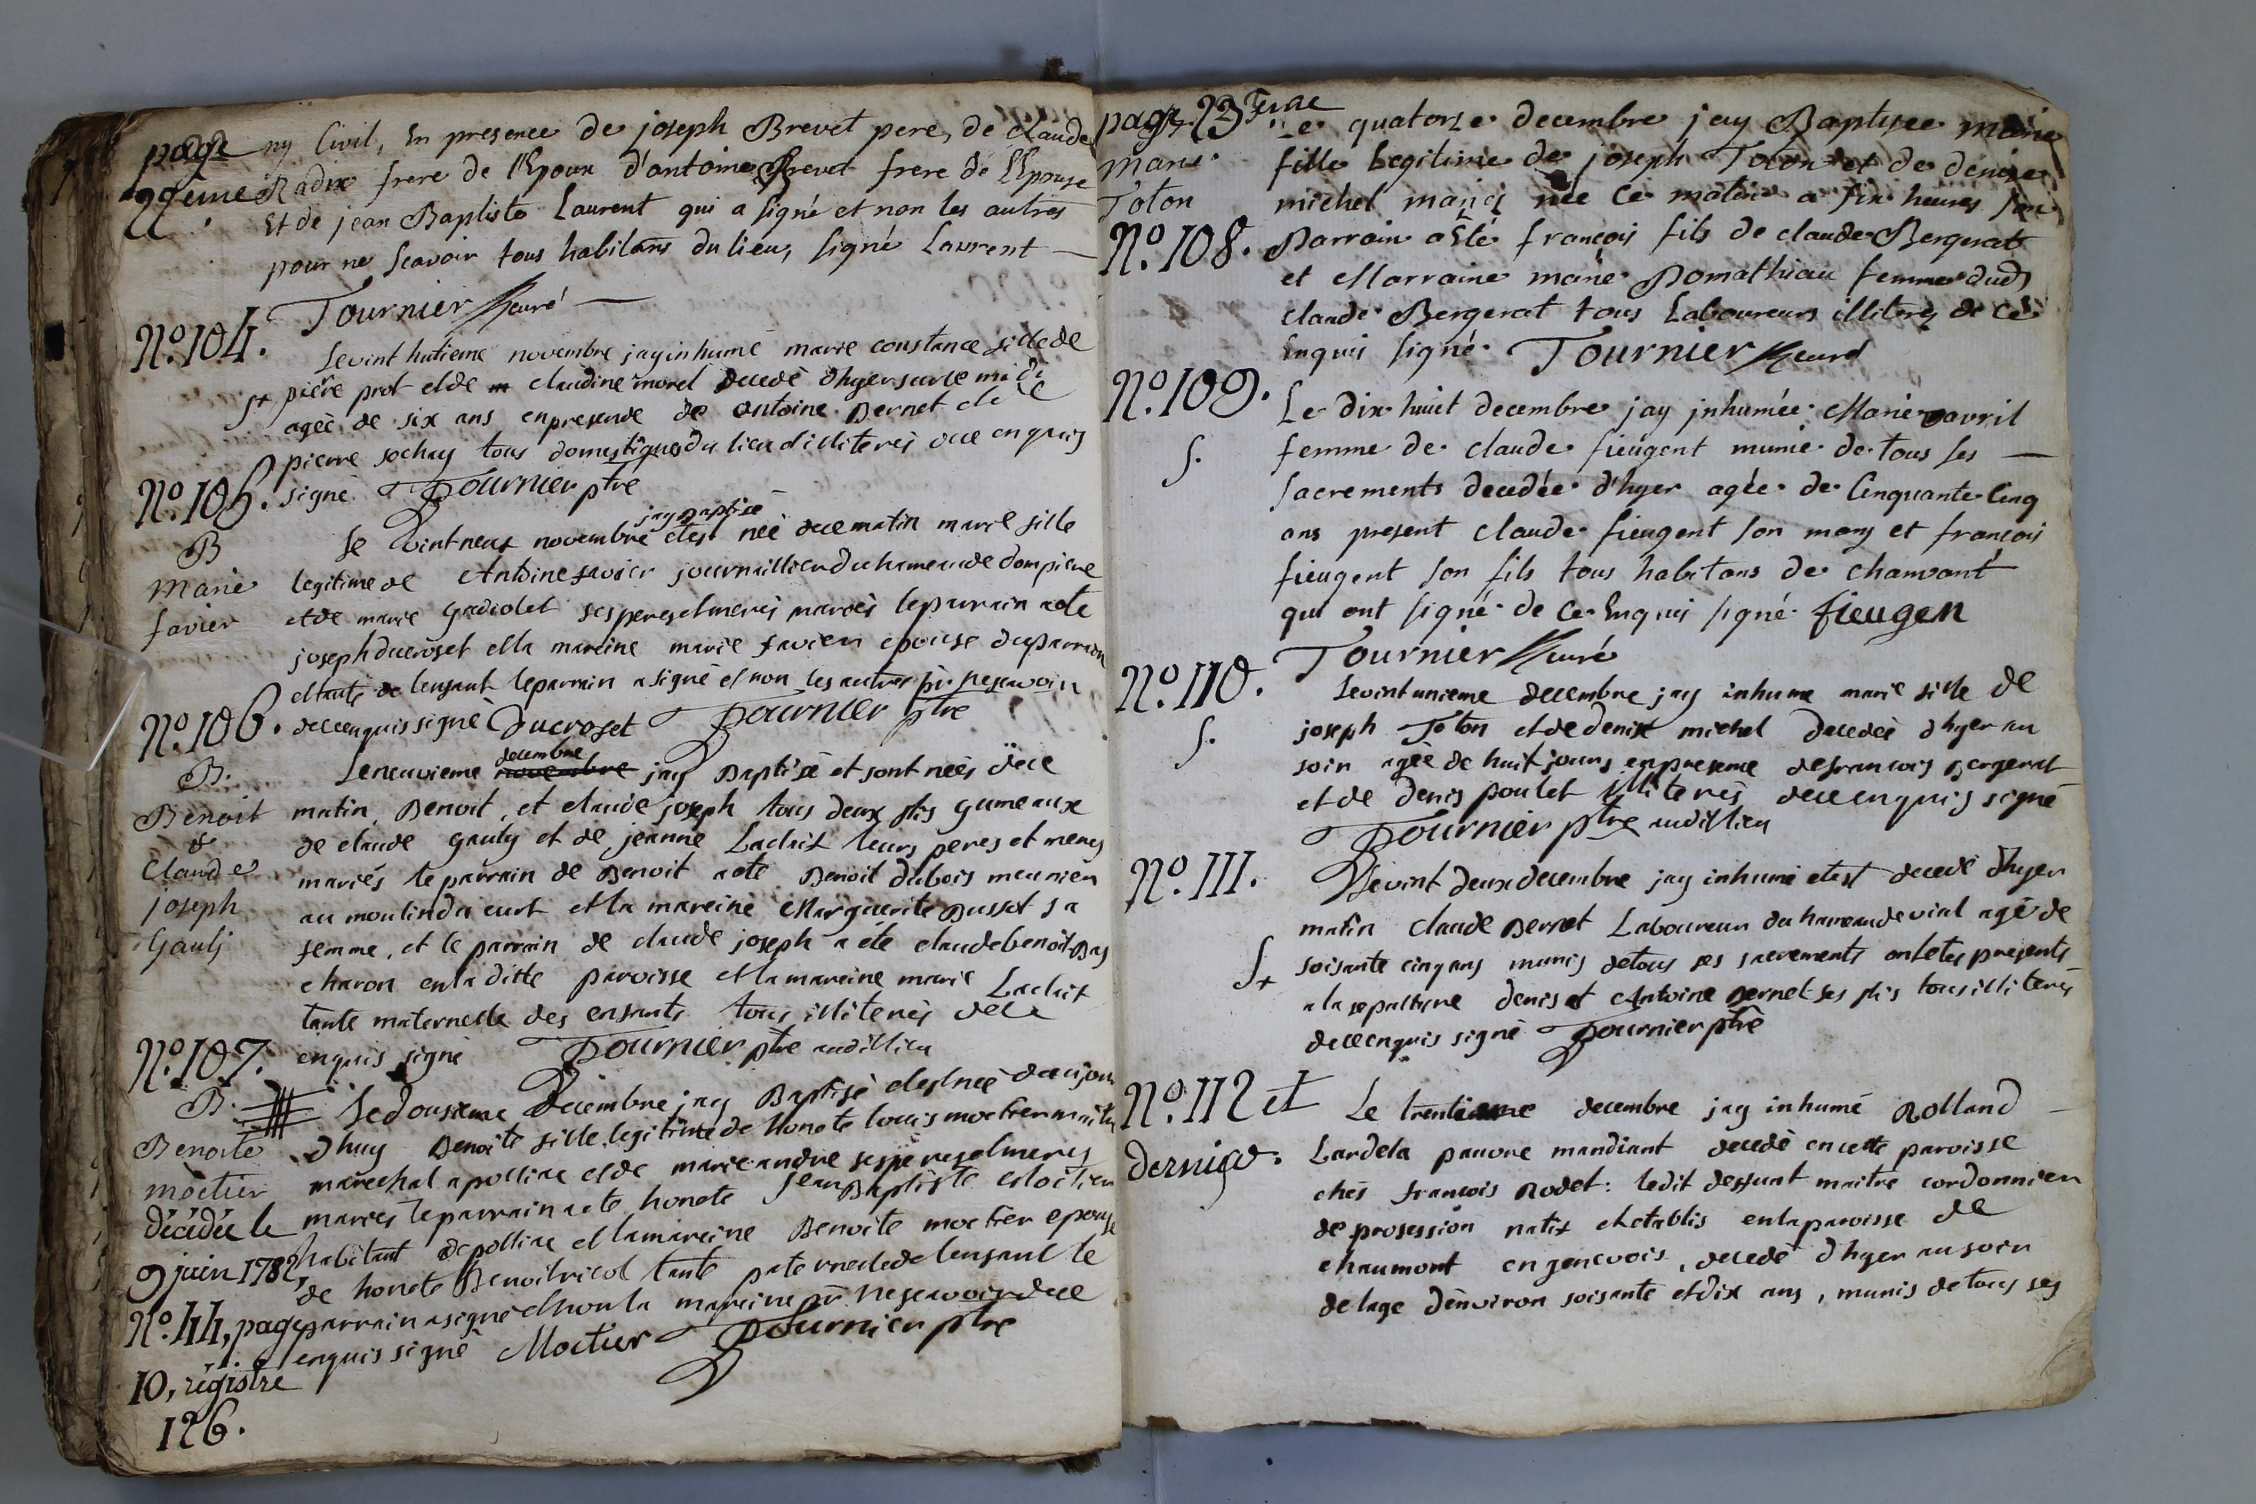 page
22ème
ny Civil, En presence de joseph Brevet pere, de claude
Radix frere de l'Epoux d'antoine Brevet frere de l'Epouse
Et de jean Baptiste Laurent qui a signé et non les autres
pour ne Scavoir tous habitans du lieu, signé Laurent
Tournier curé
N.º 104.
Le vint huitieme novembre jay inhumé marie constance fille de
pierre prot et de claudine morel decedé d'hyer sur le midi
St
agée de six ans en presence de antoine Bernet et de
pierre sochay tous domestiques du lieu illiterés de ce enquis
signé Tournier ptre
N.º 105.
B
Marie
favier
jay Baptisé
Le vint neuf novembre et est née de ce matin marie fille
legitime de Antoine favier journaillier du hameau de dompierre
et de marie gadiolet ses peres et meres mariés le parrain a eté
joseph ducroset et la mareine marie favier epouse du parrain
et tante de lenfant le parrain a signé et non les autres pr ne scavoir
de ce enquis signé Ducroset Tournier ptre
N.º 106.
B.
Benoit
&
Claude
joseph
Gauly
decembre
Le neuvieme novembre jay Baptisé et sont neés de ce
matin, Benoit, et claude joseph tous deux fils gumeaux
de claude gauly et de jeanne Laclait leurs peres et meres
mariés le parrain de Benoit a eté Benoit dubois meunier
au moulin du curt et la mareine Marguerite Busset sa
femme, et le parrain de claude joseph a eté claude benoit Bas
charon en la ditte paroisse et la mareine marie Laclait
tante maternelle des enfants tous illiterés de ce
enquis signé Tournier ptre audit lieu
N.º 107.
B.
Benoite
moctier
décédée le
9 juin 1782
N.º 44, page
10, régistre
126.
Le dousieme Decembre jay Baptisé et est née de ce jour
d'huy Benoite fille legitime de honete louis moctier maitre
marechal a polliac et de marie andre ses peres et meres
mariés le parrain a eté honete jean Baptiste
habitant de polliac et la mareine Benoite moctier epouse
de honete Benoit ricol tante paternelle de lenfant le
parrain a signé et non la mareine pr ne scavoir de ce
enquis signé Moctier Tournier ptre
page 23ème
Marie
Toton
N.º 108.
Le quatorze decembre jay Baptisee marie
fille Legitime de joseph Toton et de denise
michel mariés née ce matin a six heures son
Parrain a Eté françois fils de claude Bergerat
et Marraine marie Pomathiau femme dud
claude Bergerat tous Laboureurs illiterés de ce
Enquis signé. Tournier curé
N.º 109.
S.
Le dix huit decembre jay inhumée Marie avril
femme de claude fieugent munie de tous ses
sacrements decedée d'hyer agée de Cinquante Cinq
ans present claude fieugent son mary et françois
fieugent son fils tous habitans de chamvant
qui ont signé de ce Enquis signé fieugen
Tournier curé
N.º 110.
S.
Le vint unieme decembre jay inhumé marie fille de
joseph Toton et de denise michel decedée d'hyer au
soir agée de huit jours en presence de francois Bergerat
et de Denis poulet illiterés de ce enquis signé
Tournier ptre audit lieu
N.º 111.
St
Le vint deux decembre jay inhumé et est decedé d'hyer
matin claude Bernet Laboureur du hameau de vial agé de
soisante cinq ans munis de tous ses sacrements ont etes presents
a la sepulture denis et Antoine Bernet ses fils tous illiterés
de ce enquis signé Tournier ptre
N.º 112 et
dernier.
Le trentieme decembre jay inhumé Rolland
Lardela pauvre mandiant decedé en cette paroisse
chés françois Rodet: ledit deffunt maitre cordonnier
de profession natif et etablis en la paroisse de
chaumont en genevois, decedé d'hyer au soir
de lage d'environ soisante et dix ans, munis de tous ses